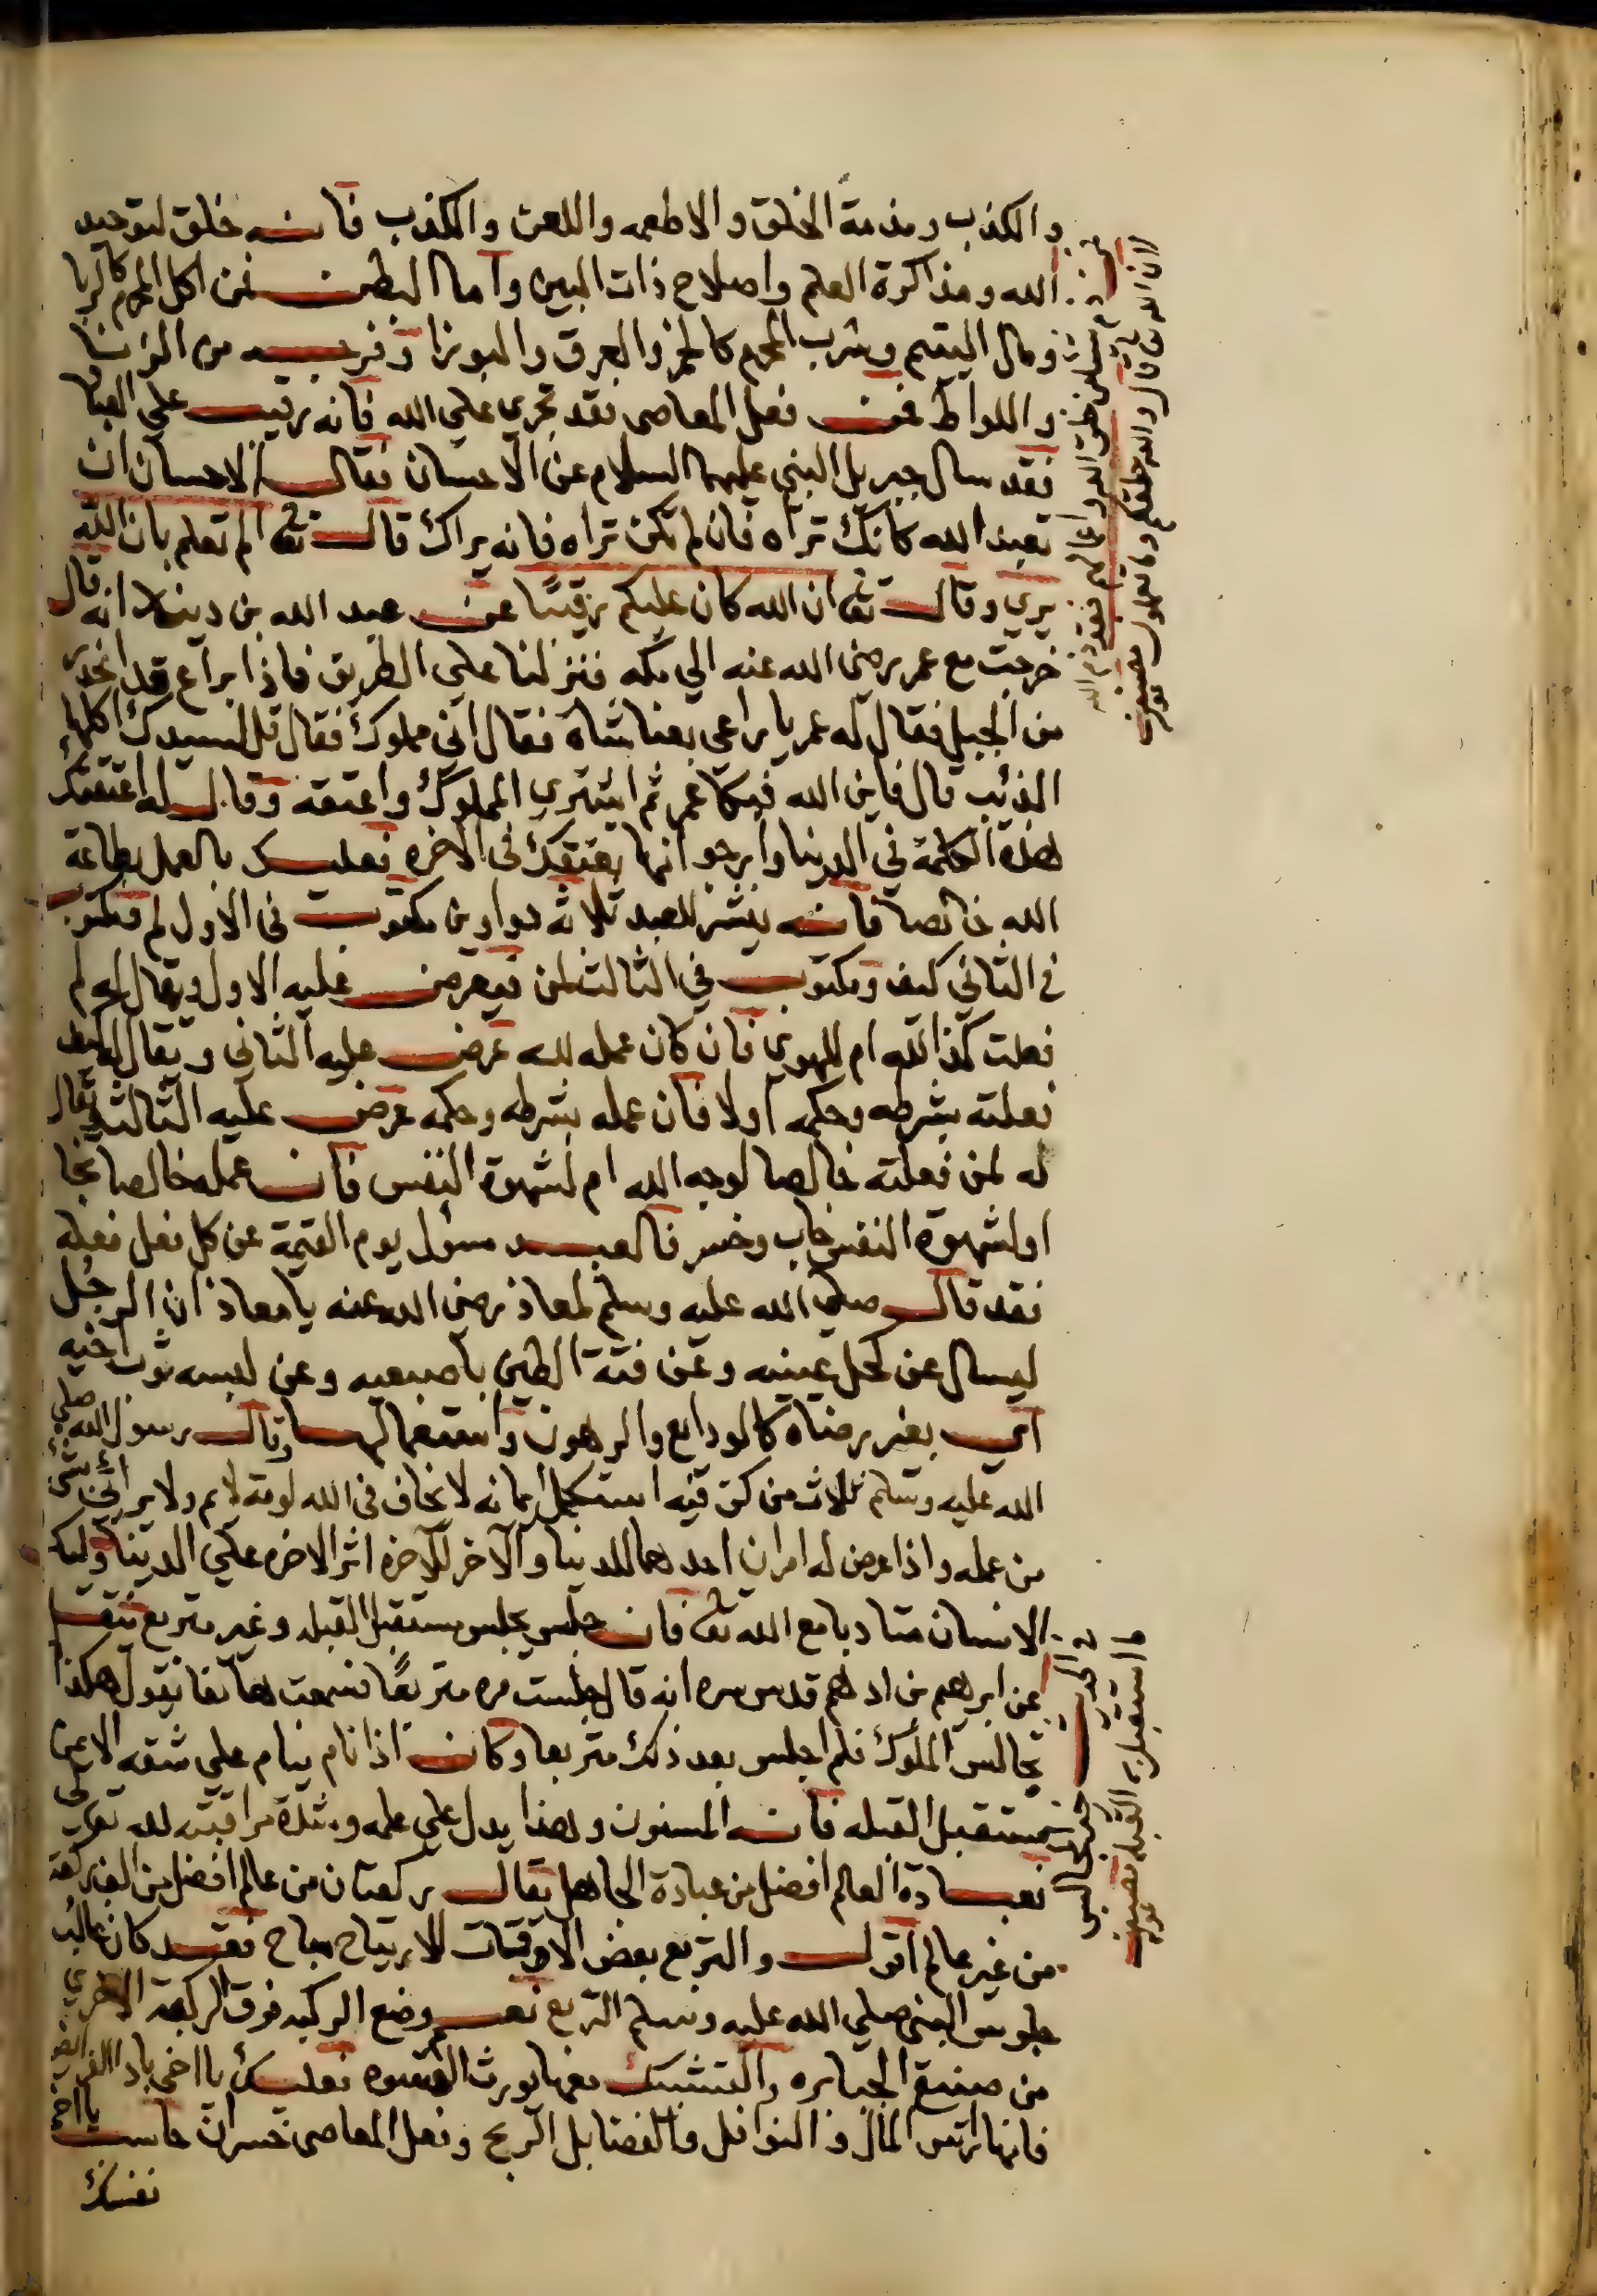 والكذب ومذمة الخلق والاطعمه واللعن والكذب فانه خلق لتوحيد
الله ومذاكرة العلم واصلاح ذات البين واما البطن فمن اكل المحرم كالربا
ومال اليتيم وشرب المحرم كالخمر والعرق والبوزا وفرجه من الزنا
واللواط فمن فعل المعاصى فقد تجرى على الله فانه رقيب على العباد
فقد سال جبريل النبى عليهما السلام عن الاحسان فقال الاحسان ان
تعبد الله كانك تراه فان لم تكن تراه فانه يراك قال تعالى الم تعلم بان الله
يرى وقال تع ان الله كان عليكم رقيبًا عن عبد الله بن دينار انه قال
خرجت مع عمر رضى الله عنه الى مكه فنزلنا على الطريق فاذا براع قد انحدر
من الجبل فقال له عمر يا راعى بعنا شاة فقال انى مملوك فقال قل لسيدك اكلها
الذئب قال فاين الله فبكا عمر ثم اشترى المملوك واعتقه وقال له اعتقتك
هذه الكلمة فى الدنيا وارجو انها تعتقك فى الاخره فعليك بالعمل بطاعة
الله خالصا فانه ينشر للعبد ثلاثه دواوين مكتوب فى الاول لم ومكتوب
فى الثانى كيف ومكتوب فى الثالث لمن فيعرض عليه الاول ويقال له لم
فعلت كذا لله ام للهوى فان كان عمله لله عرض عليه الثانى ويقال له كيف
فعلته بشرطه وحكمه اولا فان عمله بشرطه وحكمه عرض عليه الثالث ويقال
له لمن فعلته خالصا لوجه الله ام لشهوة النفس فان عمله خالصا نجا
اولشهوة النفس خاب وخسر فالعبد مسؤل يوم القيمة عن كل فعل فعله
فقد قال صلى الله عليه وسلم لمعاذ رضى الله عنه يا معاذ ان الرجل
ليسال عن كحل عينيه وعن فتة الطين باصبعيه وعن لبسه ثوب اخيه
اى بغير رضاه كالودايع والرهون واستعمالها وقال رسول الله صلى
الله عليه وسلم ثلاث من كن فيه استكمل ايمانه لا يخاف فى الله لومة لايم ولا يرائى بشئ
من عمله واذا عرض له امران احدهما للدنيا والآخر للآخره اثر الاخره على الدنيا وليكن
الانسان متادبا مع الله تع فان جلس يجلس مستقبل القبله وغير متربع فنقل
عن ابرهيم بن ادهم قدس سره انه قال جلست مره متربعًا فسمعت هاتفا يقول هكذا
تجالس الملوك فلم اجلس بعد ذلك متربعا وكان اذا نام ينام على شقه الايمن
مستقبل القبله فانه المسنون وهذا يدل على علمه وشدة مراقبته لله تعالى
فعبادة العالم افضل من عبادة الجاهل يقال ركعتان من عالم افضل من الف ركعة
من غير عالم اقول والتربع بعض الاوقات للارتياح مباح فقد كان غالب
جلوس النبى صلى الله عليه وسلم التربع نعم وضع الركبه فوق الركبة الاخرى
من صنيع الجبابره والتشبك معها يورث القسوه فعليك يا اخى باداالفرايض
فانها راس المال والنوافل والفضايل الربح وفعل المعاصى خسران حاسب يااخى
نفسك
ان الله
قال والله خلقكم وما تعملون
ما استقبل به القبله
خير المجالس